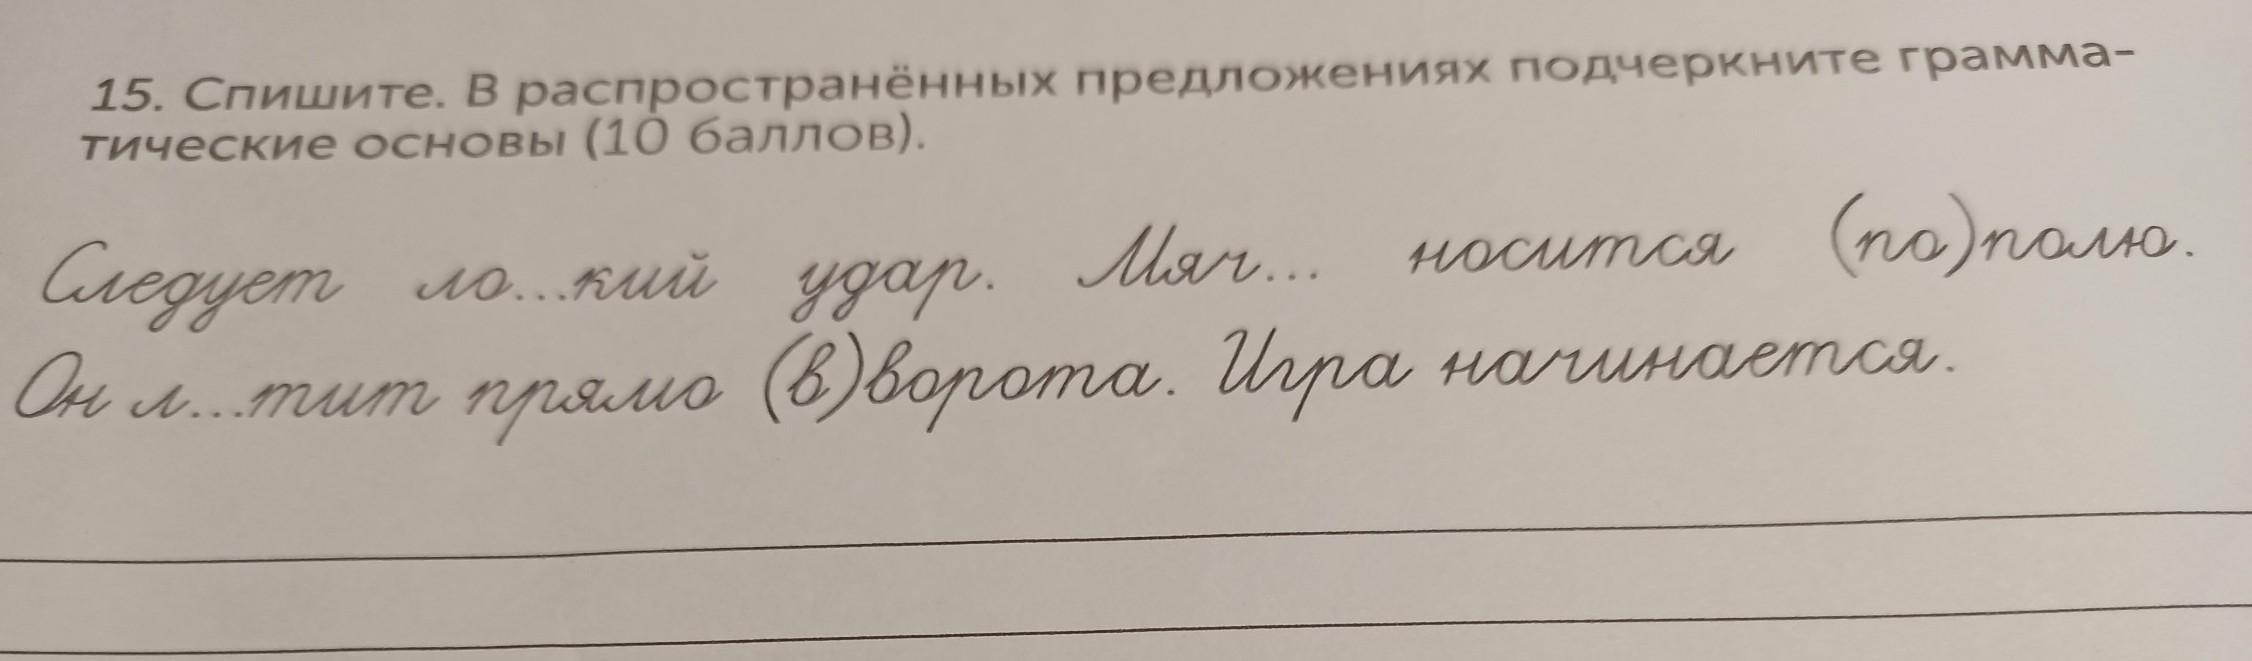 15. Спишите. В распространённых предложениях подчеркните грамма-
тические основы (10 баллов).
Следует ло...кий удар. Мяч... носится (по)полю.
Он л...тит прямо (в)ворота. Игра начинается.